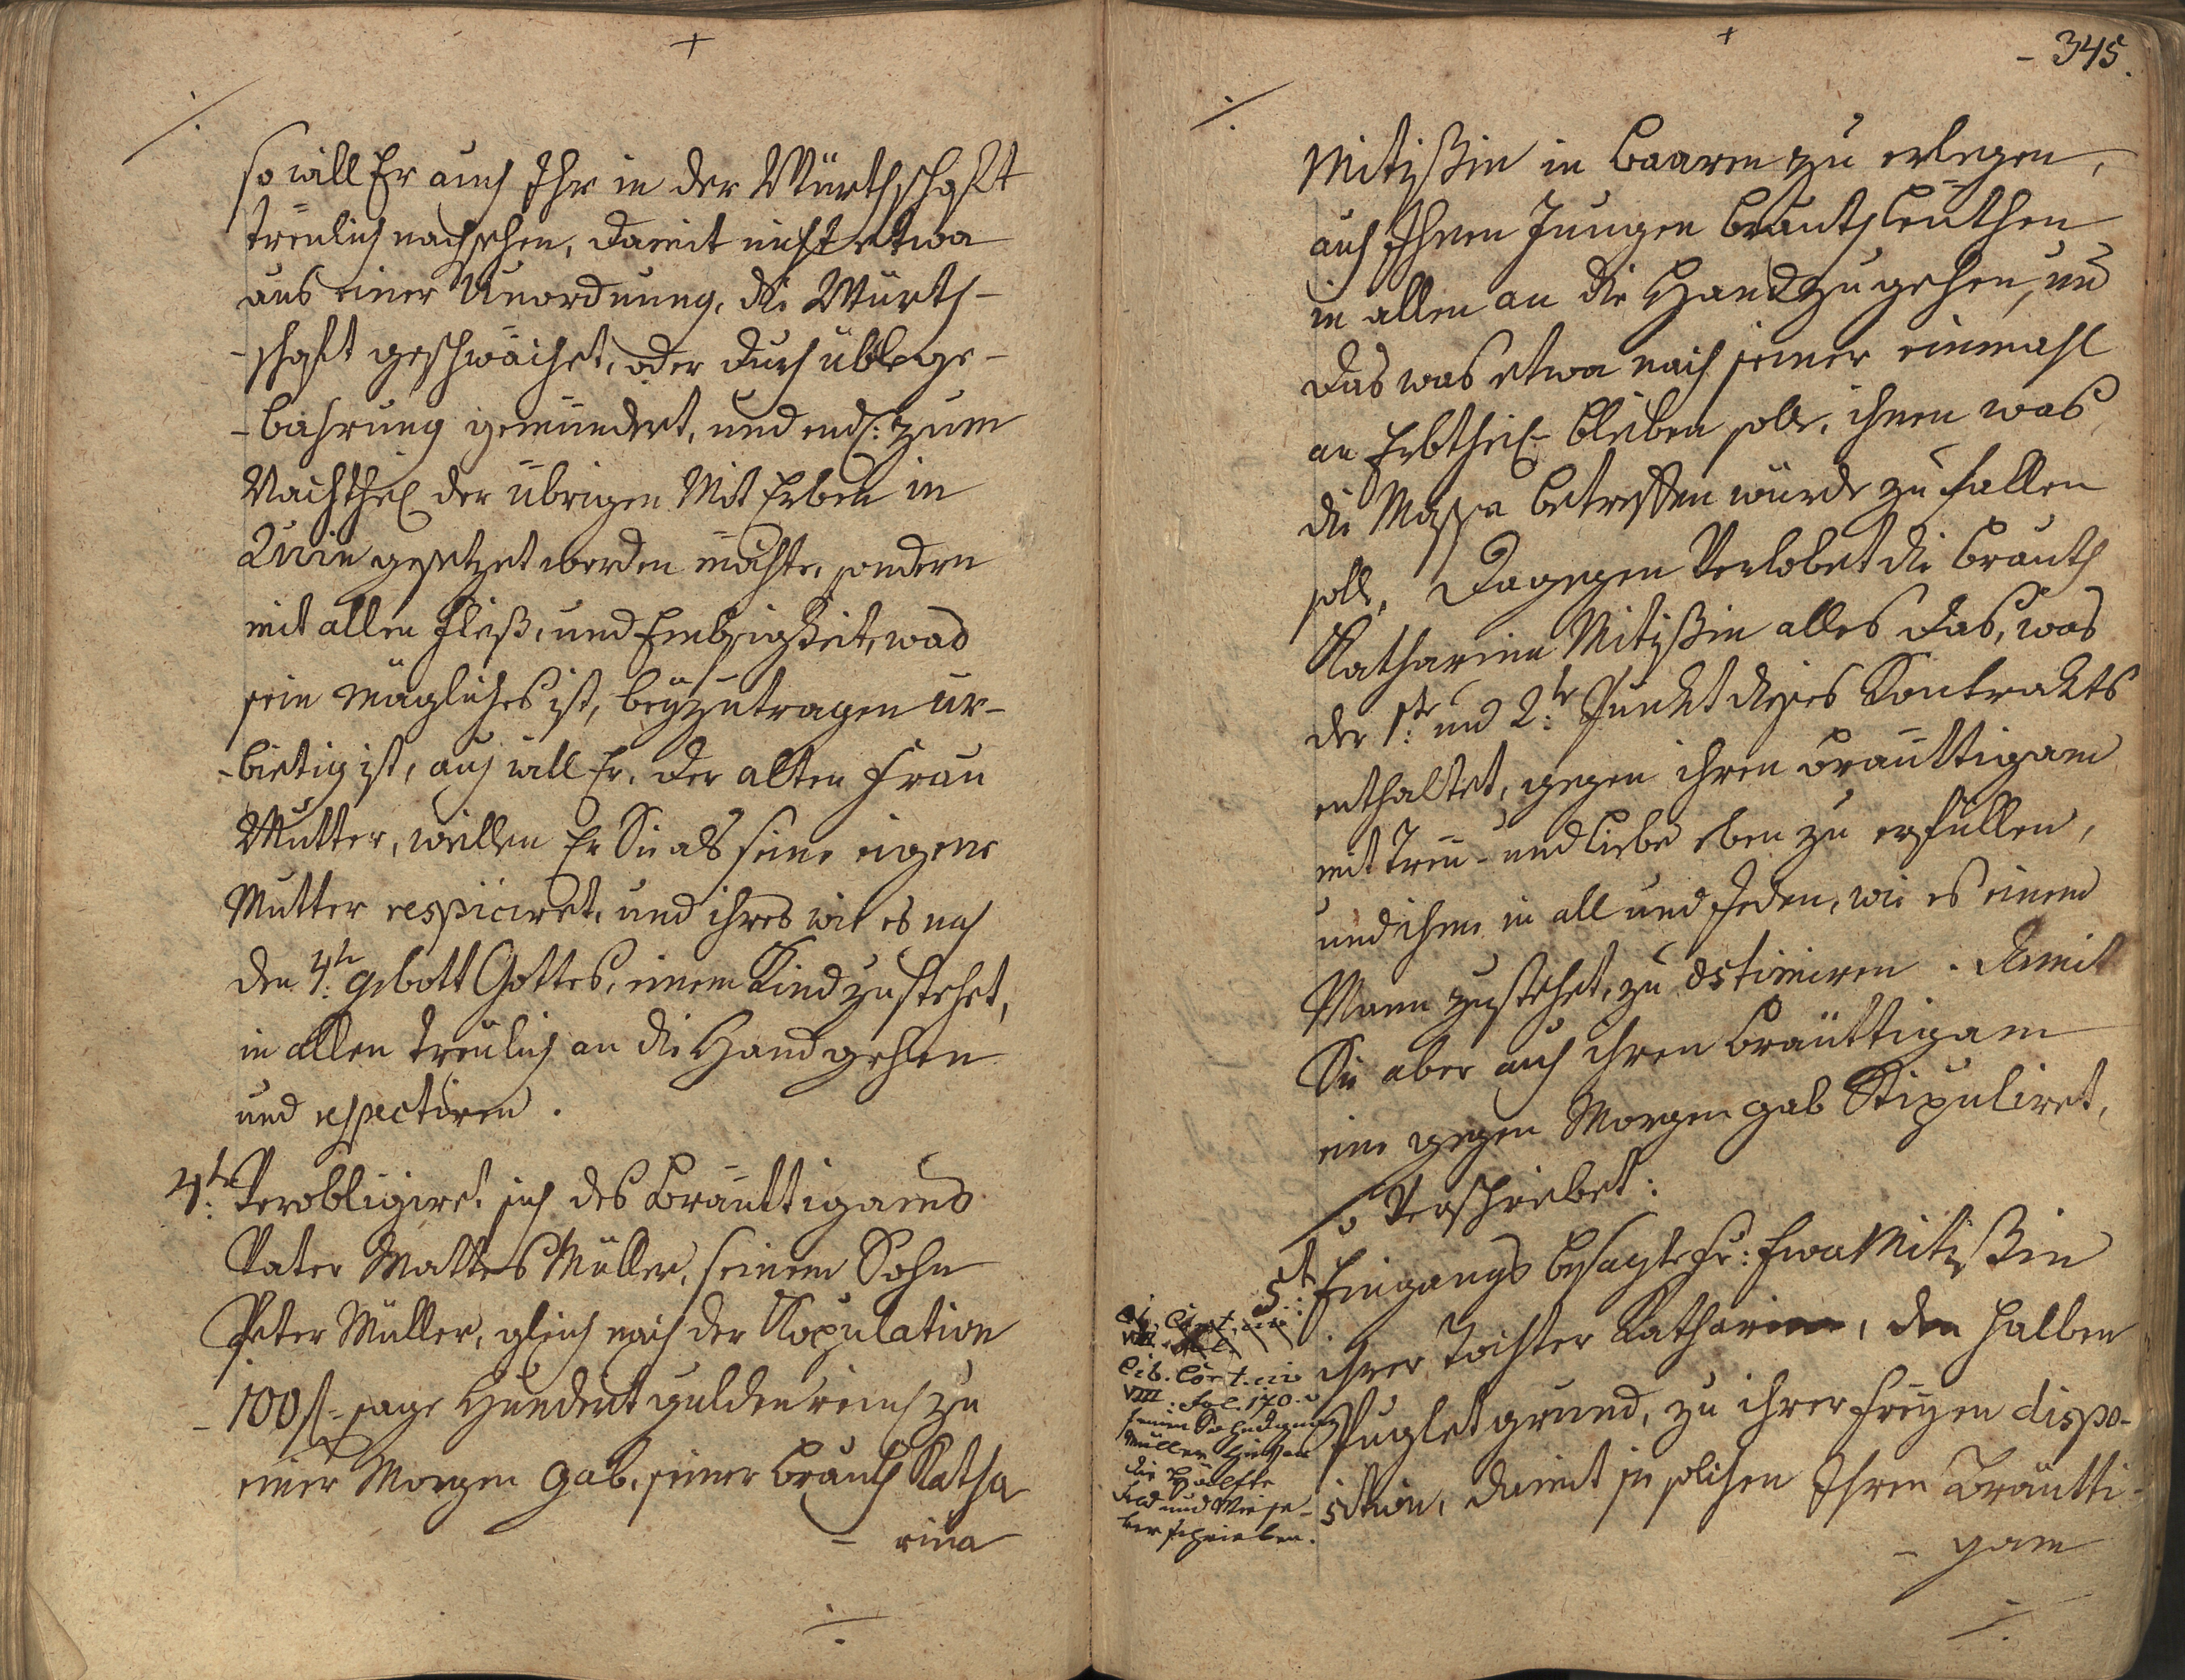 so will Er auch Ihr in der Würthschaft
treülich nachsehen, damit nicht etwa
aus einer Unordnung, die Würth-
-schaft geschwächet, oder durch üble ge-
-bahrung gemündert, und endl: zum
Nachtheil der übrigen Mit Erben in
Ruin gesetzet werden möchte, sondern
mit allen Fleiß, und Embsigkeit, was
sein mögliches ist, beyzutragen ur-
-bietig ist, auch will Er, der alten Frau
Mutter, weillen Er Sie als seine eigene
Mutter respiciret, und ihres wie es nach
den 4:tn gebott Gottes, einem Kind zustehet,
in allen treulich an die Hand gehen
und respectiren.
4:tn Verobligiret sich des Bräuttigams
Vater Mattes Müller, seinem Sohn
Peter Müller, gleich nach der Kopulation
- 100 f sage Hundert gulden reinl zu
einer Morgen Gab, seiner Brauth Katha
- rina
- 345.
Mitißin in Baaren zu erlegen,
auch Ihnen Jungen Brauthleuthen
in allen an die Hand zu gehen, und
das was etwa nach seiner einmahl
an Erbtheil bleiben solle, ihnen was
die Massa betreffen würde zu fallen
solle. Dagegen Verlobet die Brauth
Katharina Mitißin alles das, was
der 1:te und 2:te Punckt dieses Kontrakts
enthaltet, gegen ihren Bräuttigam
mit Treü- und Liebe eben zu erfüllen,
und ihme in all und Jeden, wie es einem
Mann zustehet, zu æstimiren. Damit
Sie aber auch ihren Bräuttigam
eine gegen Morgen gab Stipuliret,
Verschreibet:
5:t Eingangs besagte Fr: Ewa Mitißin
ihrer Tochter Katharina, den halben
grund, zu ihrer freyen dispo-
sition, damit sie solchen Ihren Bräutti-
- gam
Lib. Cont.
VIII: Fol. 170.
Müller
die Hälfte
Feld und Wiese
verschrieben.